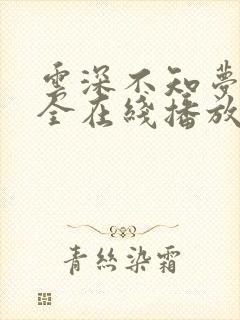 雲深不知夢
全在綫播放
青絲染霜